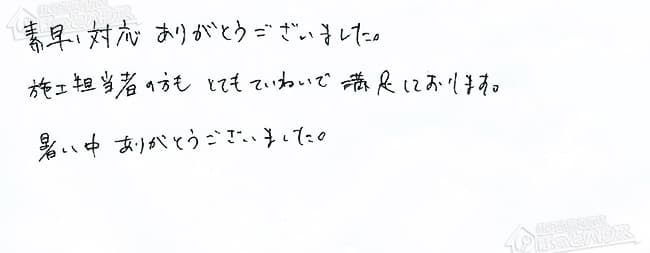 素早い対応 ありがとうございました。
施工担当者の方も とてもていねいで 満足しております。
暑い中 ありがとうございました。